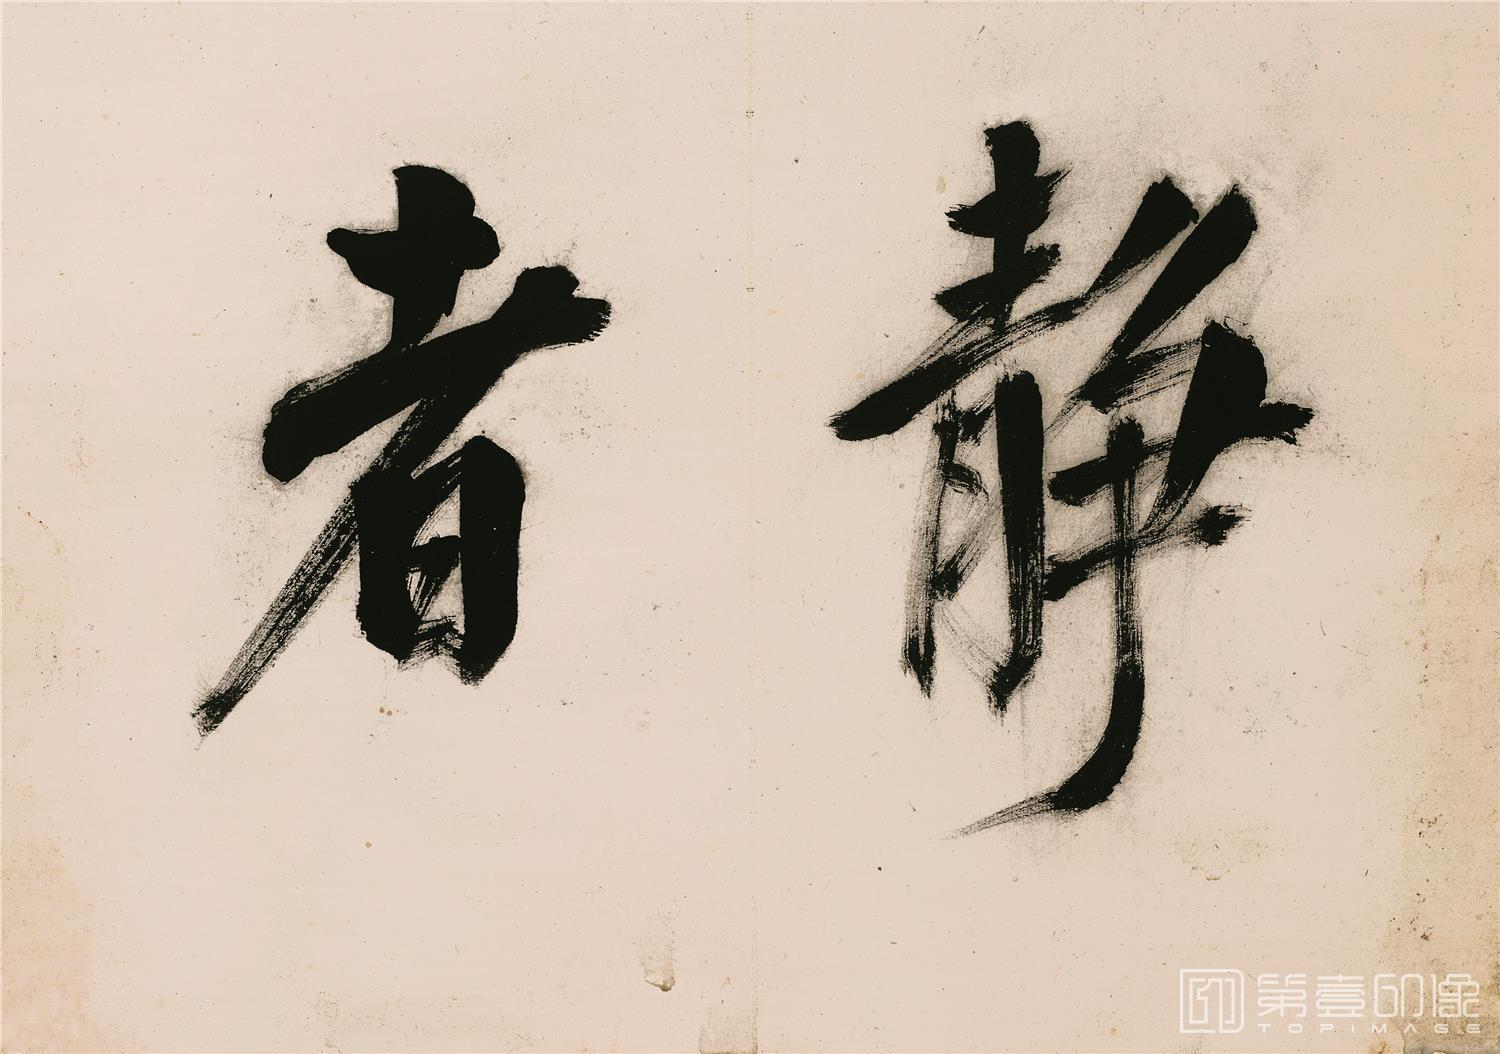 静者
第壹印像
TOPIMAGE